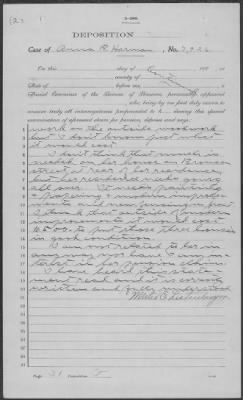 (2)
3-386.
DEPOSITION
Case of Anna R. Harman, No.
On this day of , 190 ,
county of
State of , before me,
Special Examiner of the Bureau of Pensions, personally appeared
who, being by me first duly sworn to
answer truly all interrogatories propounded to
examination of aforesaid claim for pension, deposes and says:
work on the outside woodwork
but I don't know just what
it would cost.
I don't think that much is
needed on her house on
street at rear of her residence,
but her residence needs going
all over. It needs painting
& papering & modern improve-
ments and new fencing in fact
I think that outside of modern
improvements it would cost
to put those three houses
in good condition.
I am not related to her in
any way nor have I any in-
terest in her pension claim.
I have heard this state-
ment read and it is correctly
written and fully understood.
Page 31 Deposition